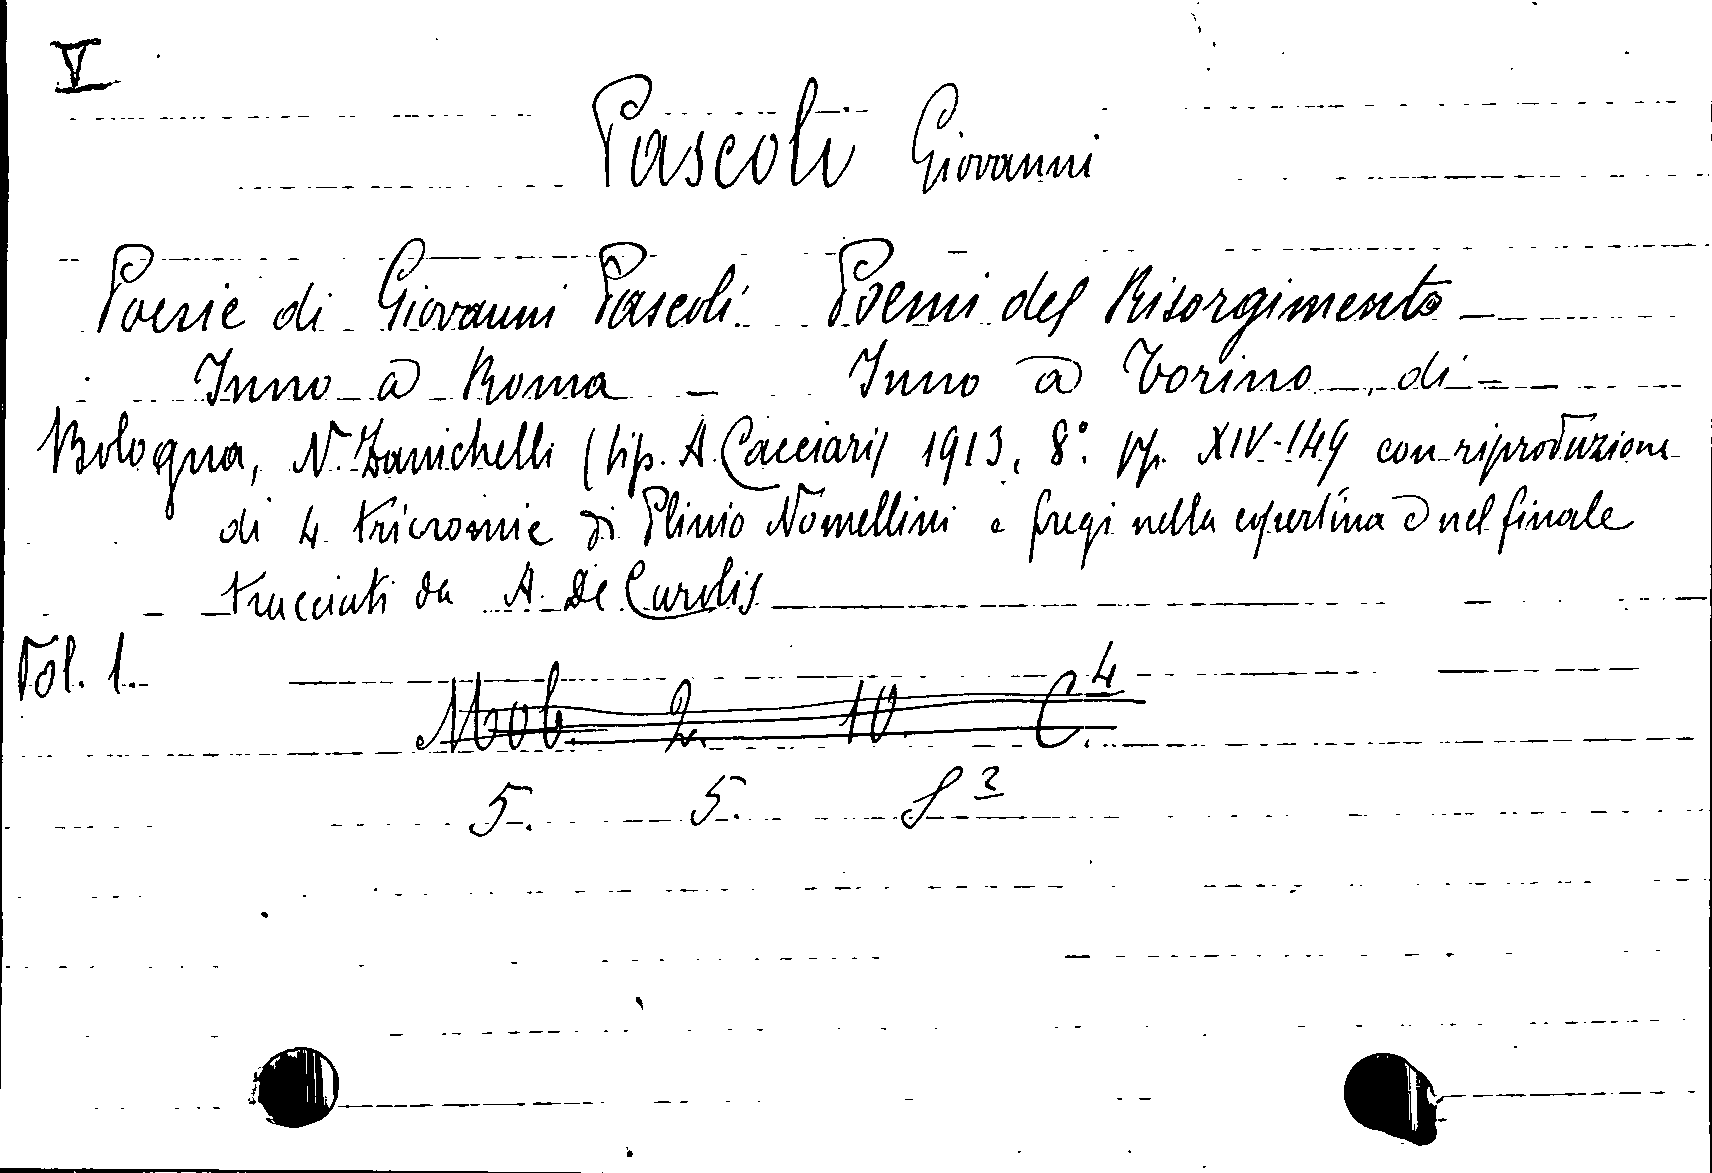 V
Pascoli Giovanni
Poesie di Giovanni Pascoli. Poemi del Risorgimento -
Inno a Roma - Inno a Torino, di -
Bologna, N. Zanichelli (tip. A. Cacciari) 1913, 8° pp. XIV-149 con riproduzione
di 4 tricromie di Plinio Nomellini e fregi nella copertina e nel finale
tracciati da A. De Carolis
Vol. 1.
Mob. 2. 10. C.4
5. 5.